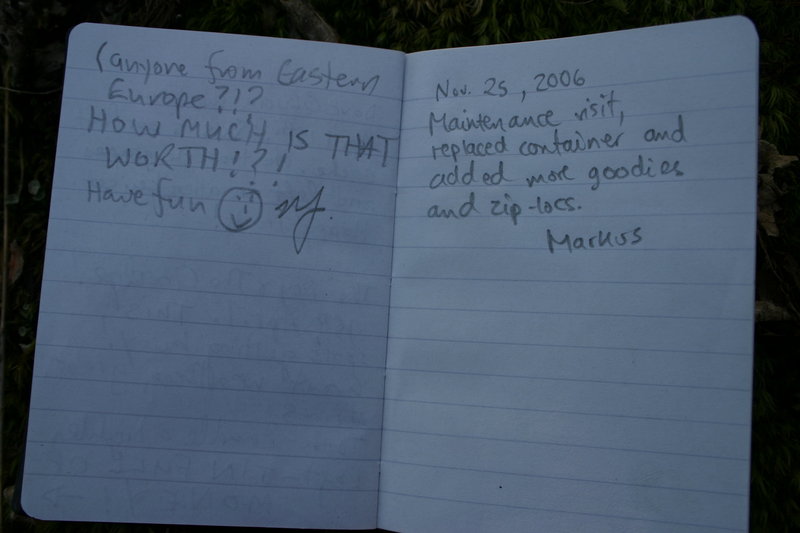 (anyone from Eastern
Europe?!?
HOW MUCH IS THAT
WORTH!?!
Have fun
Nov. 25, 2006
Maintenance visit,
replaced container and
added more goodies
and zip-locs.
Markus